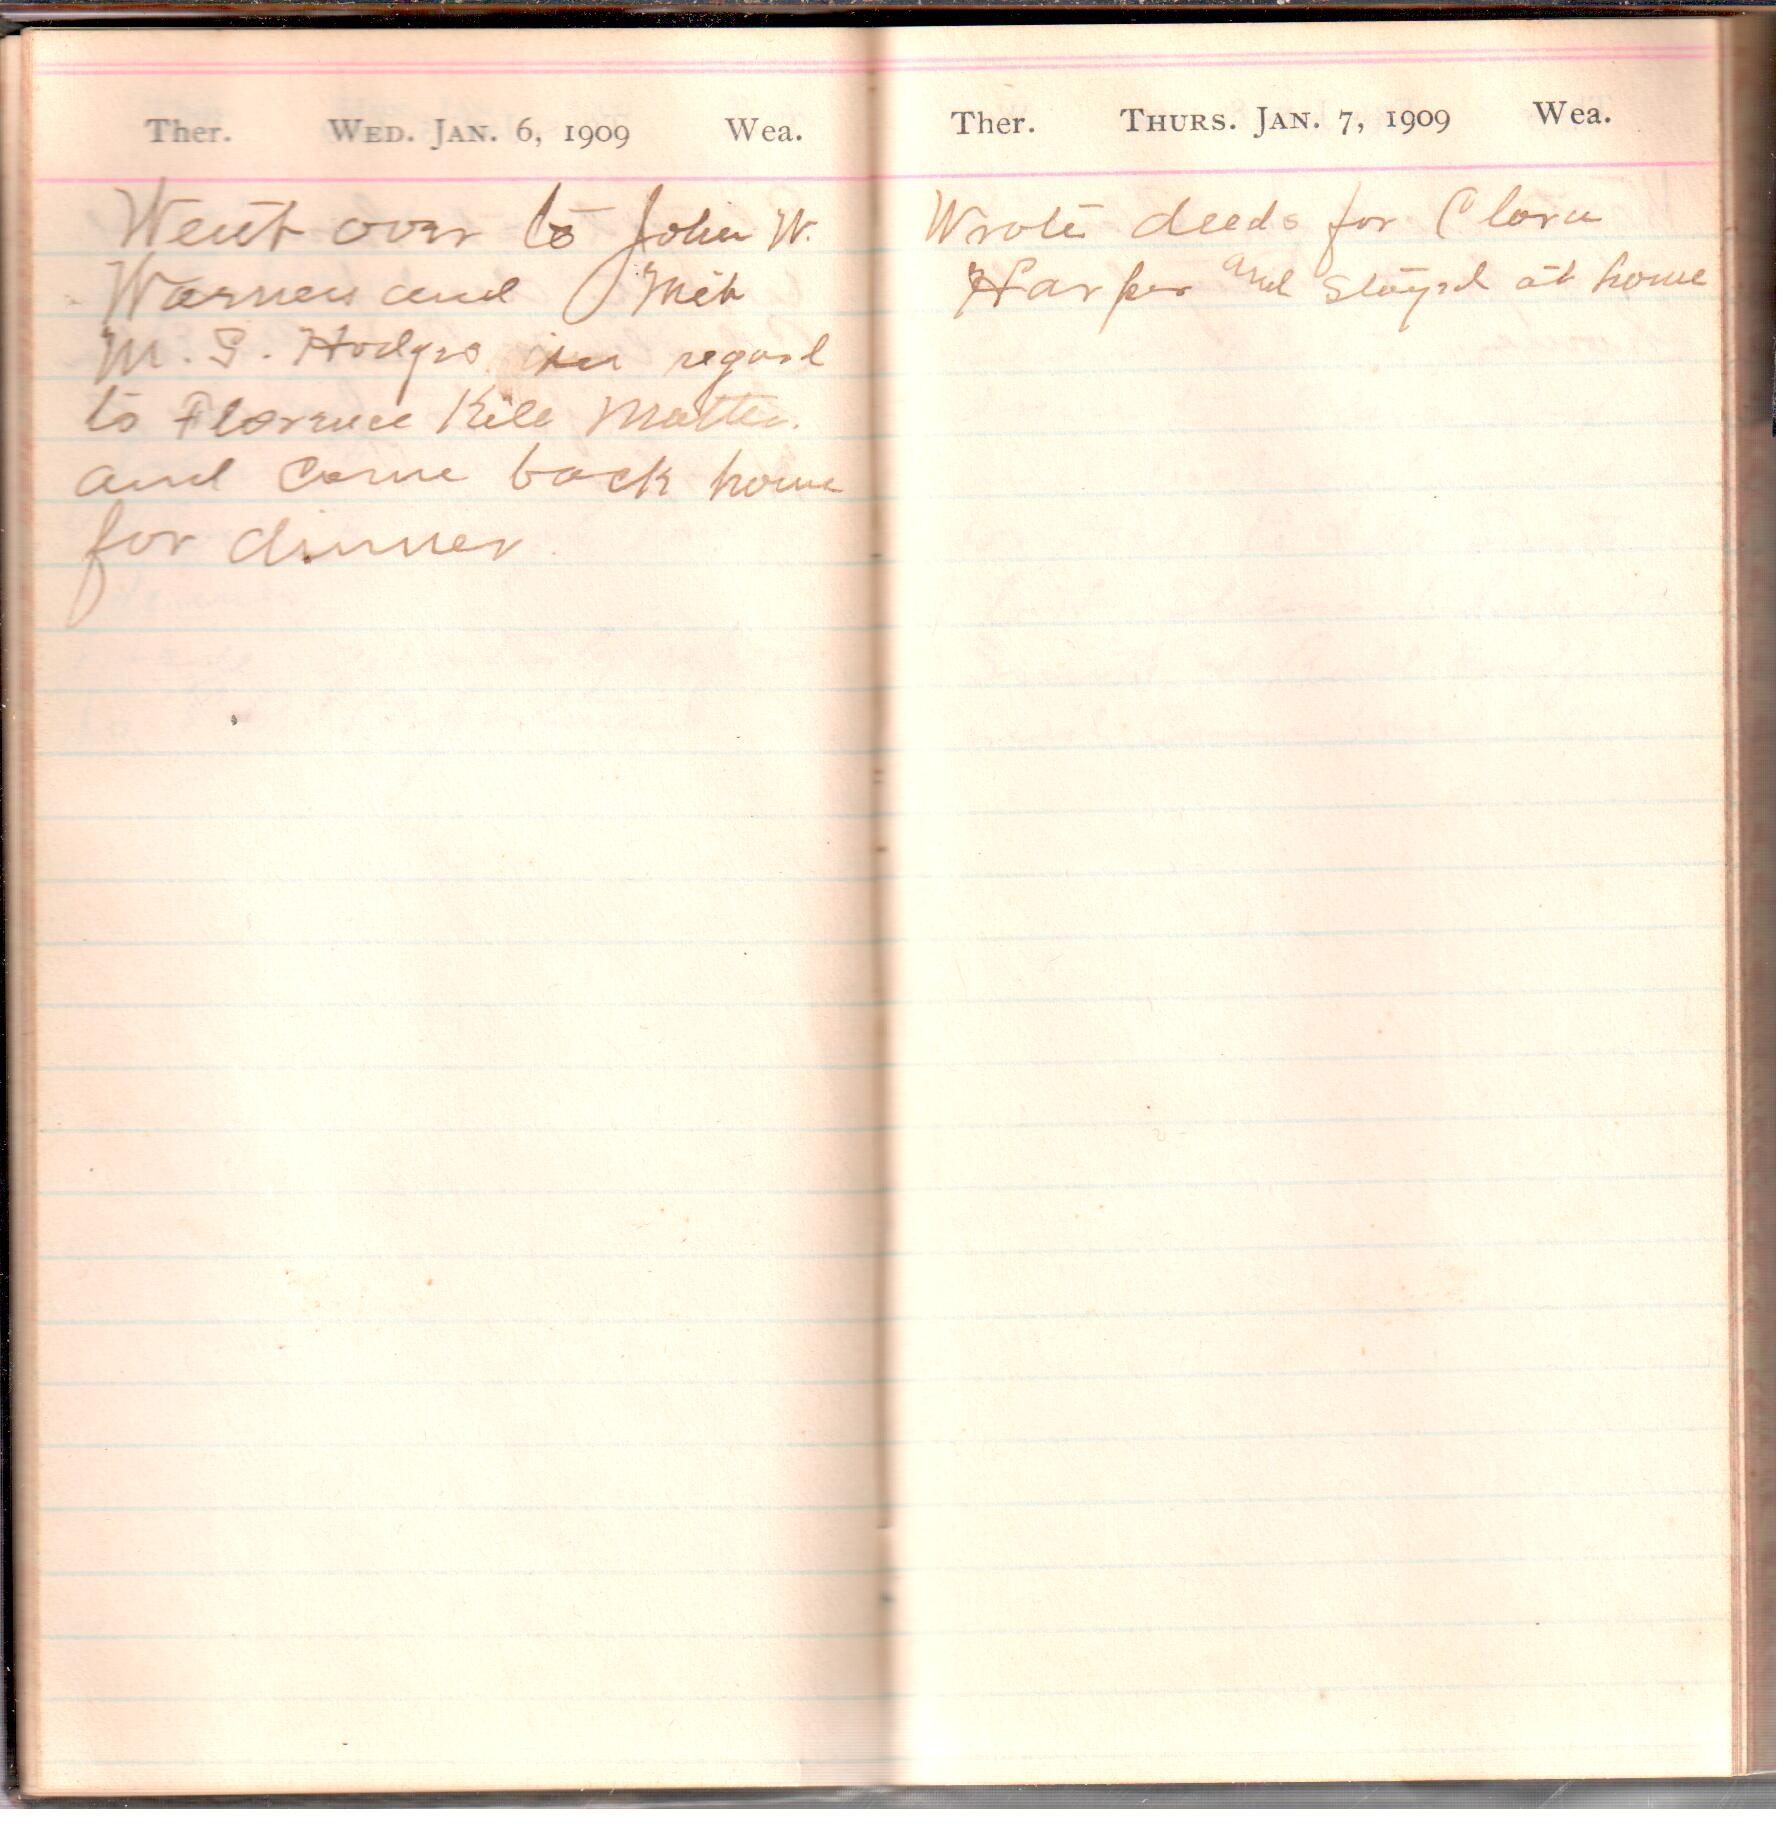 Ther. WED. JAN. 6, 1909 Wea.
Went over to John W.
Warners and Met
M. S. Hodges in regard
to Florence Kile Matter.
and came back home
for dinner
Ther. THURS. JAN. 7, 1909 Wea.
Wrote deeds for Clara
Harper and stayed at home